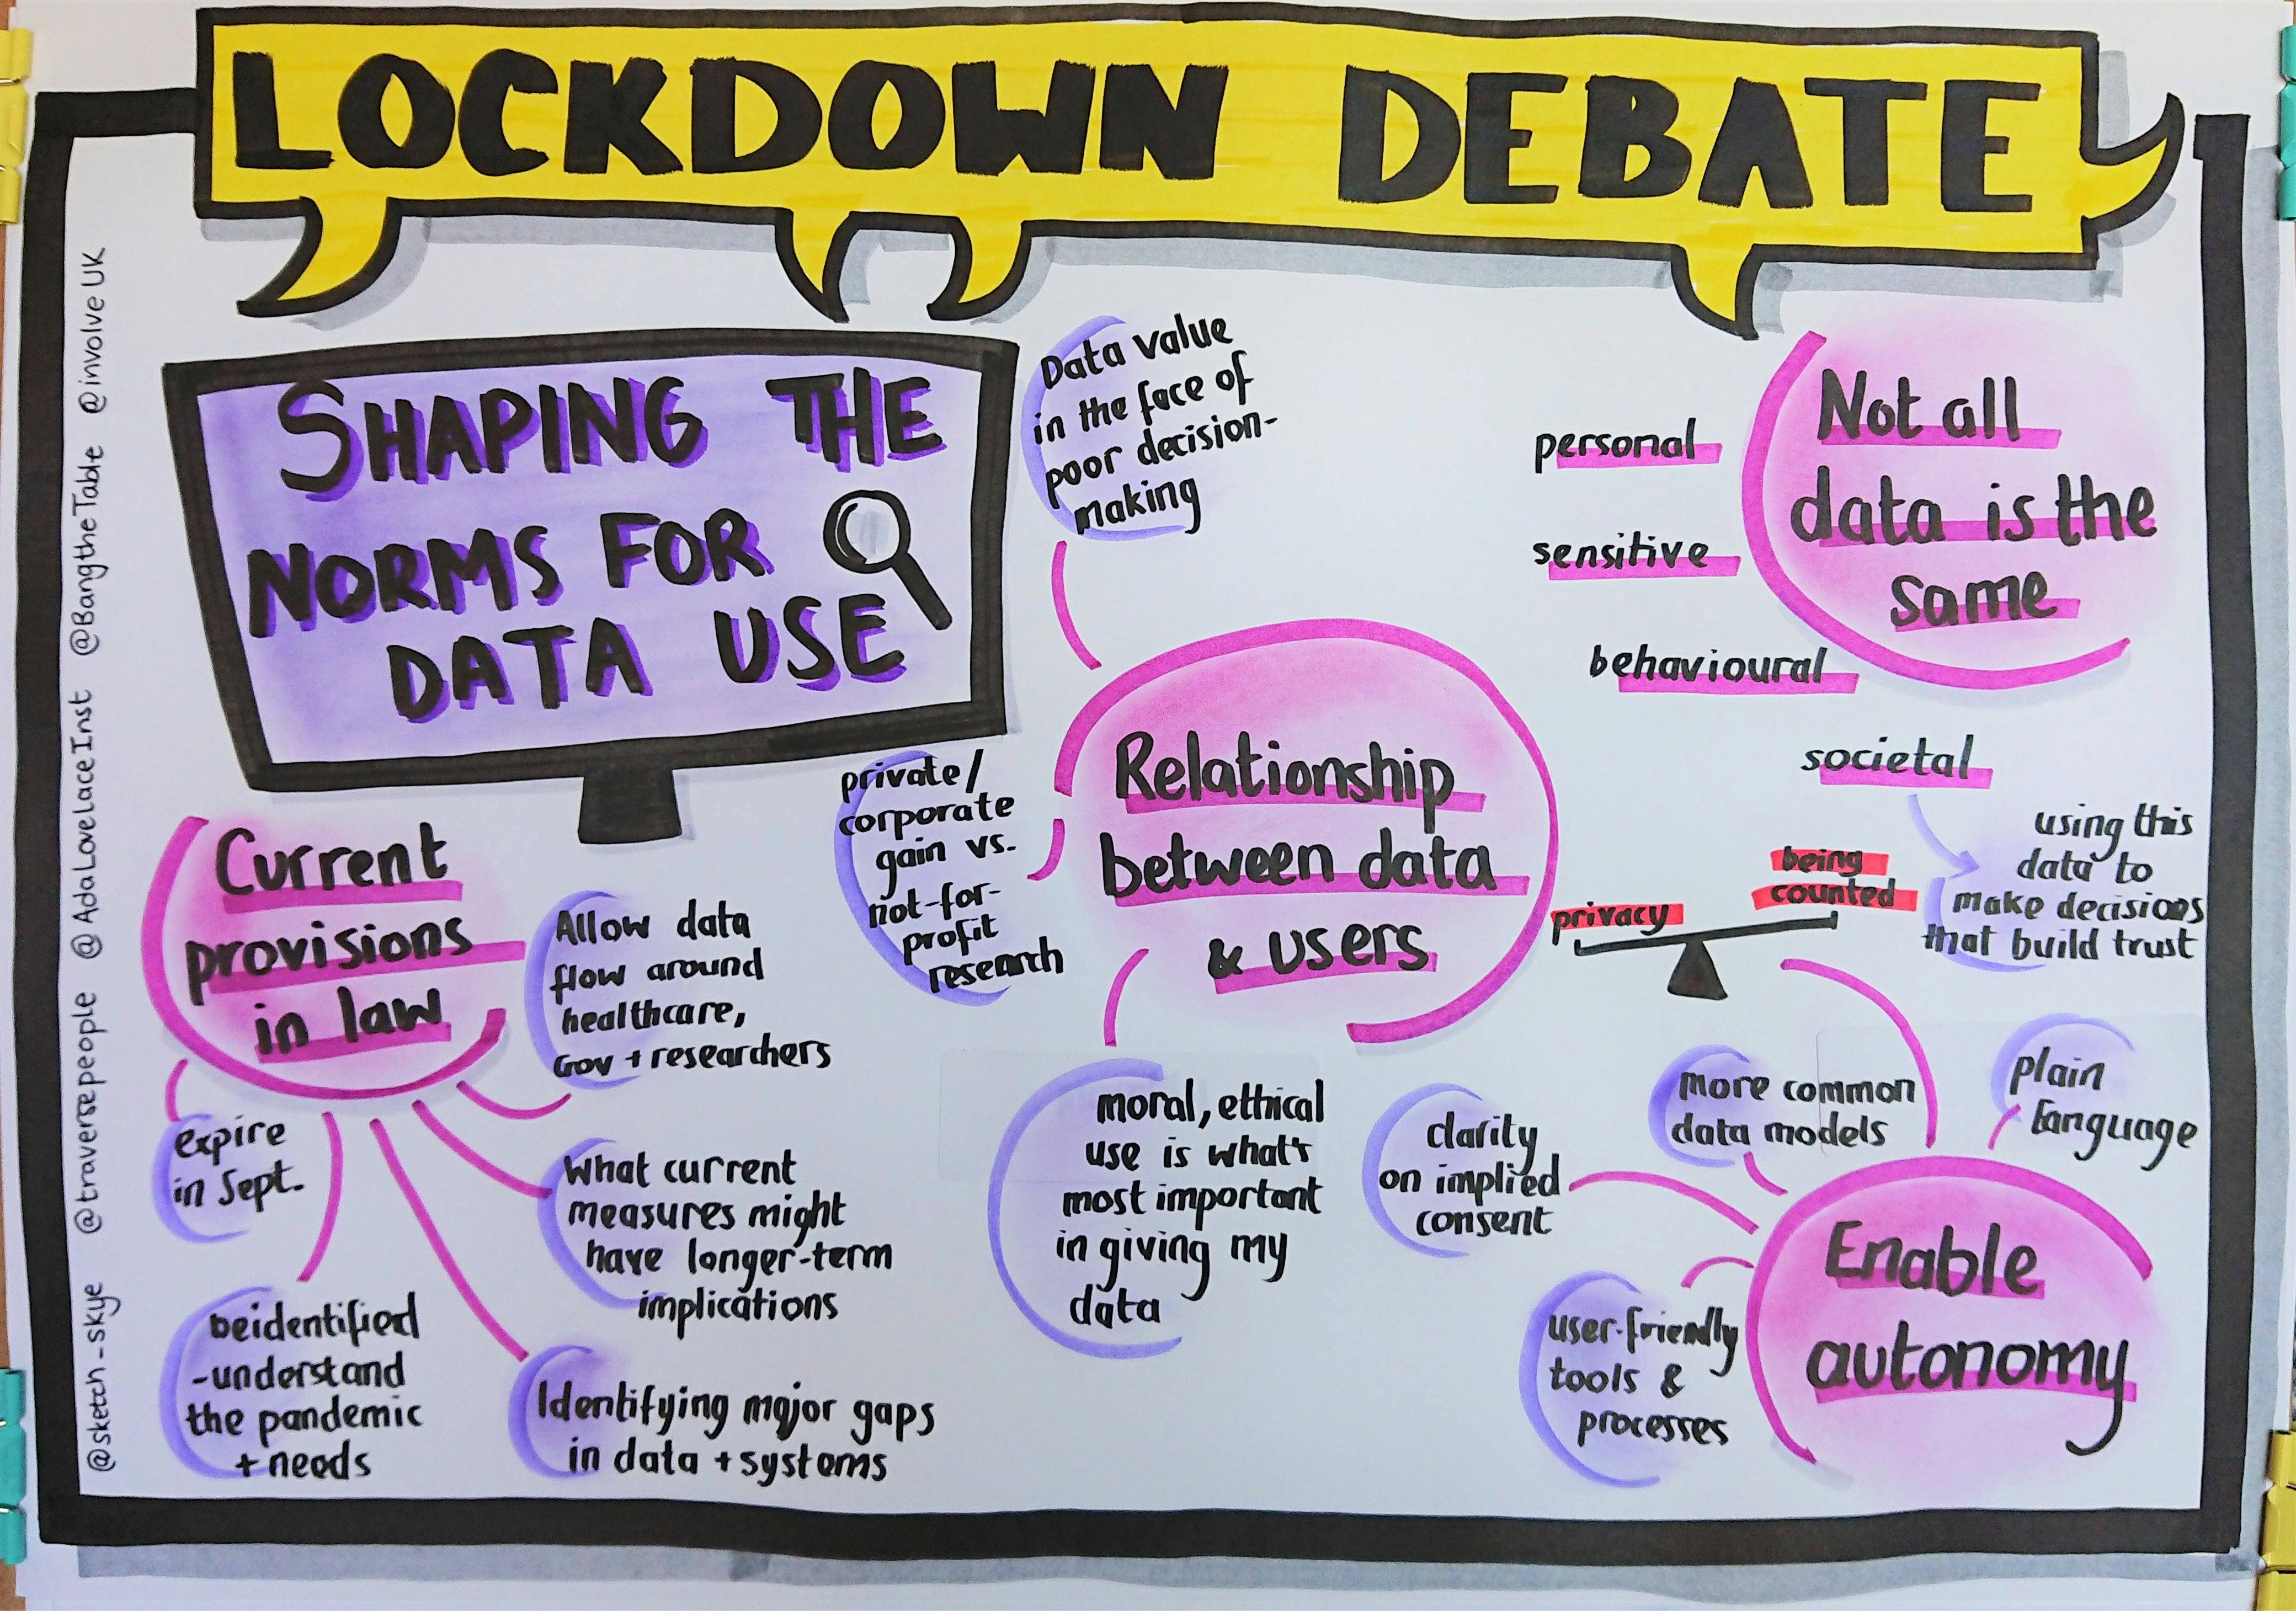 LOCKDOWN DEBATE
SHAPING THE
NORMS FOR
DATA USE
@sketch_skye @traversepeople @AdaLovelaceInst @BangtheTable @involveUK
Current
provisions
in law
expire
in Sept.
beidentified
-understand
the pandemic
+ needs
Identifying major gaps
in data + systems
What current
measures might
have longer-term
implications
Allow data
flow around
healthcare,
Gov + researchers
Data value
in the face of
poor decision-
making
private/
corporate
gain vs.
not-for-
profit
research
Relationship
between data
& users
moral, ethical
use is what's
most important
in giving my
data
Not all
data is the
same
personal
sensitive
behavioural
societal
using this
data to
make decisions
that build trust
privacy
being
counted
Enable
autonomy
clarity
on implied
consent
more common
data models
plain
language
user-friendly
tools &
processes